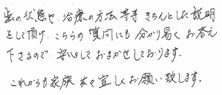 歯の状態や、治療の方法等々 きちんとした説明
をして頂け、こちらの質問にも分かり易くお答え
下さるので、安心しておまかせしております。
これからも家族共々宜しくお願い致します。